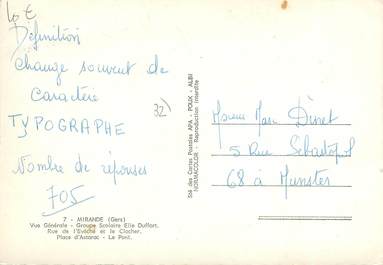 Lot
Définition
change souvent de
caractère
TYPOGRAPHE
Nombre de réponses
705
32)
7 - MIRANDE (Gers)
Vue Générale - Groupe Scolaire Elie Duffort.
Rue de l'Evêché et le Clocher.
Place d'Astarac - Le Pont.
Sté des Cartes Postales APA - POUX - ALBI
NORMACOLOR - Reproduction interdite
Marc Dinet
5 Rue Sébastopol
68 à Munster